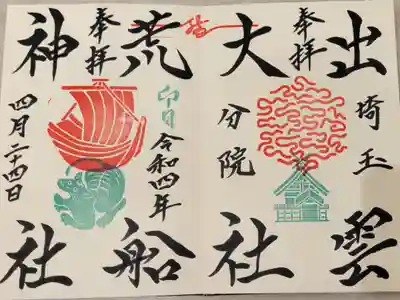 出雲
埼玉
奉拝
大社
分院
結
荒船
令和四年
卯日
奉拝
神社
四月二十四日